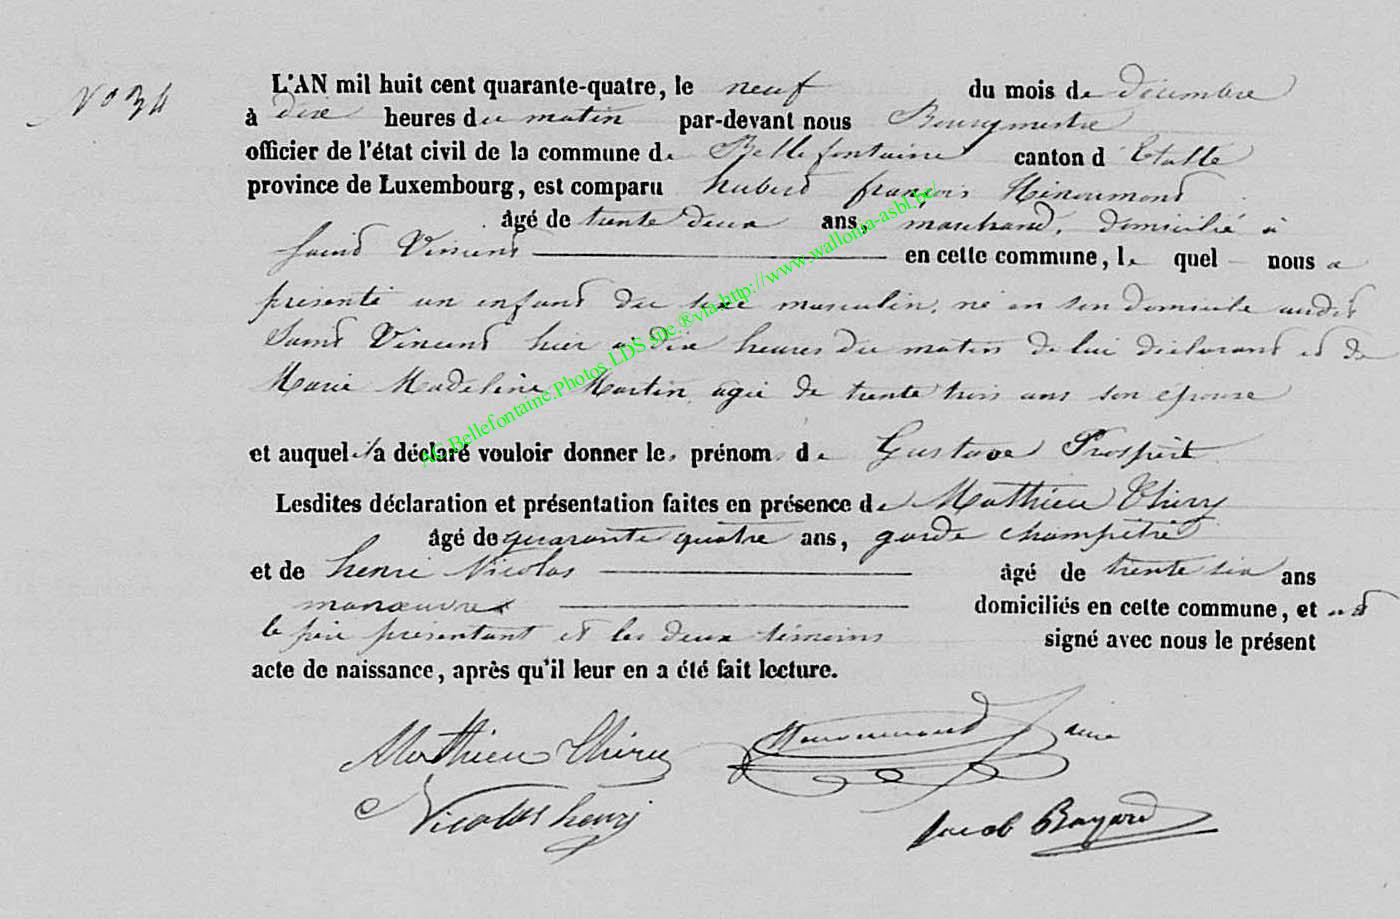 N° 34
L'AN mil huit cent quarante-quatre, le neuf du mois de décembre
à dix heures du matin par-devant nous Bourgmestre
officier de l'état civil de la commune de Bellefontaine canton d'Etalle
province de Luxembourg, est comparu hubert françois
âgé de trente deux ans, marchand, domicilié à
Saint Vincent en cette commune, le quel nous a
présenté un enfant du sexe masculin, né en son domicile audit
Saint Vincent hier à dix heures du matin de lui déclarant et de
Marie Madeleine Martin agée de trente trois ans son epouse
et auquel il a déclaré vouloir donner les prénoms de Gustave Prospert
Lesdites déclaration et présentation faites en présence de Mathieu Thiry
âgé de quarante quatre ans, garde champetre
et de henri Nicolas âgé de trente six ans
manœuvre domiciliés en cette commune, et ont
le père présentant et les deux témoins signé avec nous le présent
acte de naissance, après qu'il leur en a été fait lecture.
Mathieu Thiry
Nicolas henri
Jacob Bayard
AC.Bellefontaine.Photos.LDS.site.®via.http://www.wallonia-asbl.be/